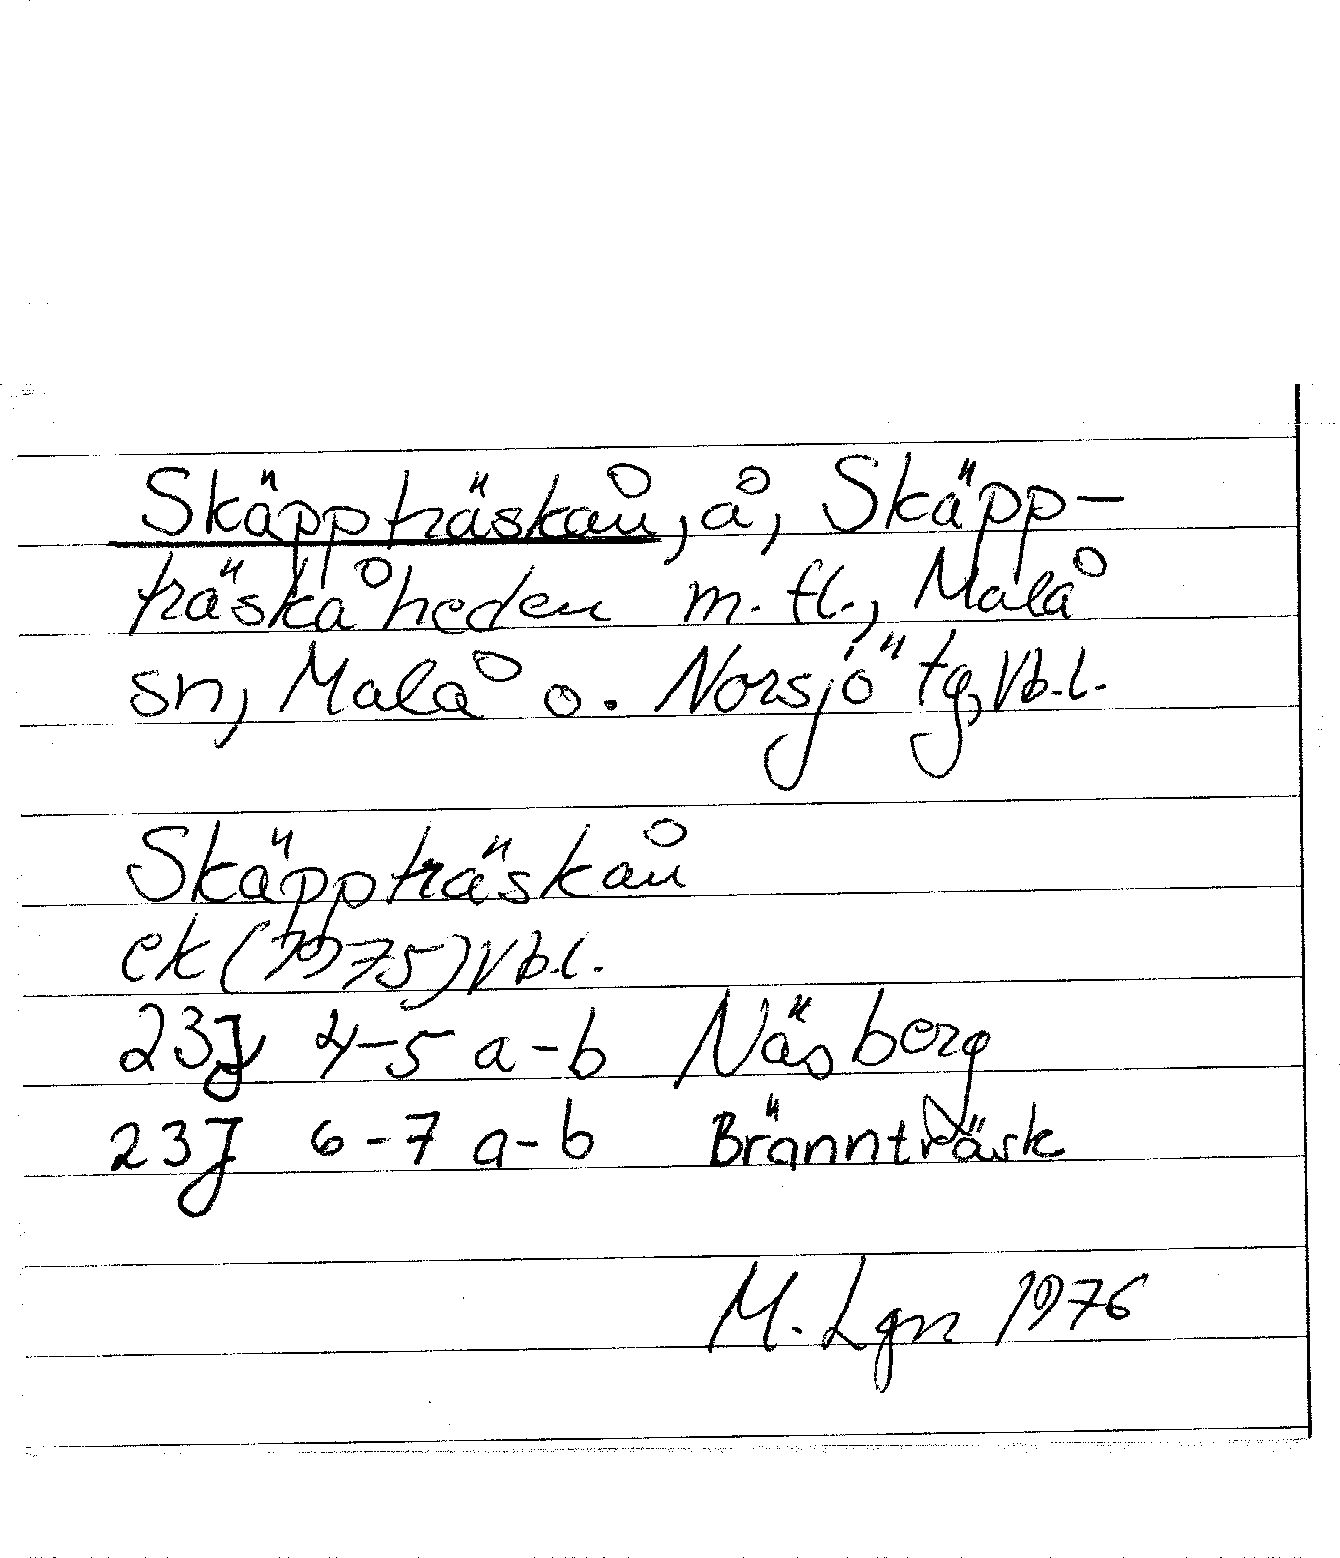 Skäppträskån, å, Skäpp-
träskåheden m. fl., Malå
sn, Malå o. Norsjö tg, Vb. l.
Skäppträskån
ek (1975) Vb. l.
23J 4-5 a-b Näsberg
23J 6-7 a-b Brännträsk
M. Lgn 1976